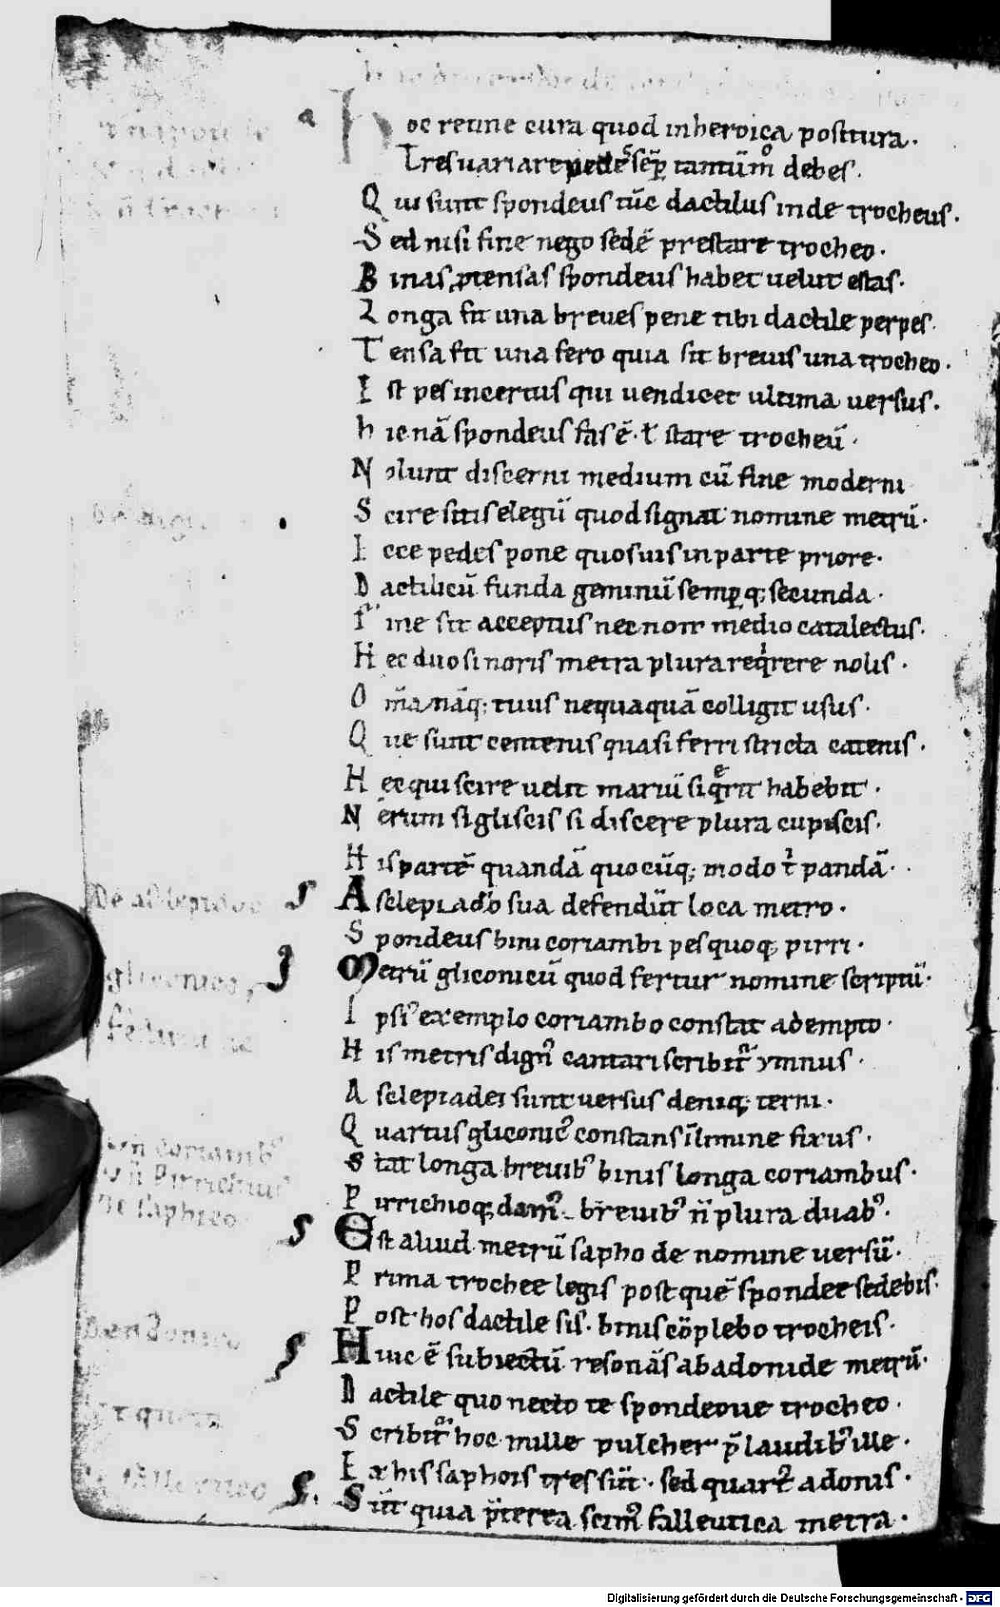 Hoc retine cura quod in heroica positura.
Tres uariare pedes sēp tantūm debes.
Qui sunt spondeus tūc dactilus inde trocheus.
Sed nisi fine nego sedē prestare trocheo.
Binas ptensas spondeus habet uelut estas.
Longa fit una breues pene tibi dactile perpes.
Tensa fit una fero quia sit breuis una trocheo.
Est pes incertus qui uendicet ultima uersus.
hic nā spondeus fas ē. ł stare trocheū.
Nolunt discerni medium cū fine moderni
Scire sitis elegū quod signat nomine metrū.
Ecce pedes pone quos uis in parte priore.
Dactilicū funda geminū semp q; secunda.
Fine sit acceptus nec non medio catalectus.
Hec duo si noris metra plura reqrere nolis.
Om̄a nāq; tuus nequaquā colligit usus.
Que sunt centenis quasi ferri stricta catenis.
Hec qui scire uelit mariū si qrit habebit.
Nerum si gliscis si discere plura cupiscis.
His partē quandā quocūq; modo t pandā.
De asclepiadeo Asclepiadeo sua defendūt loca metro.
Spondeus bini coriambi pes quoq; pirri.
gliconico Metrū gliconicū quod fertur nomine scriptū.
Ipsi exemplo coriambo constat adempto.
His metris dign cantari scribit ymnus.
Asclepiadei sunt uersus deniq; terni.
Quartus gliconic constans ī limine fixus.
coriamb Stat longa breuib binis longa coriambus.
Pirrichius Pirrichioq; dam. breuib n̄ plura duab.
saphico Est aliud metrū sapho de nomine uersū.
Prima trochee legis post quē spondee sedebis.
Post hos dactile sis. binis cōplebo trocheis.
De adonico Huic ē subiectū resonās ab adonide metrū.
Dactile quo necto te spondeoue trocheo.
Scribit hoc mille pulcher p laudib ille.
Ex his saphois tres sūt. sed quart adonis.
falleutico Sūt quia p̄terea scim falleutica metra.
Digitalisierung gefördert durch die Deutsche Forschungsgemeinschaft - DFG